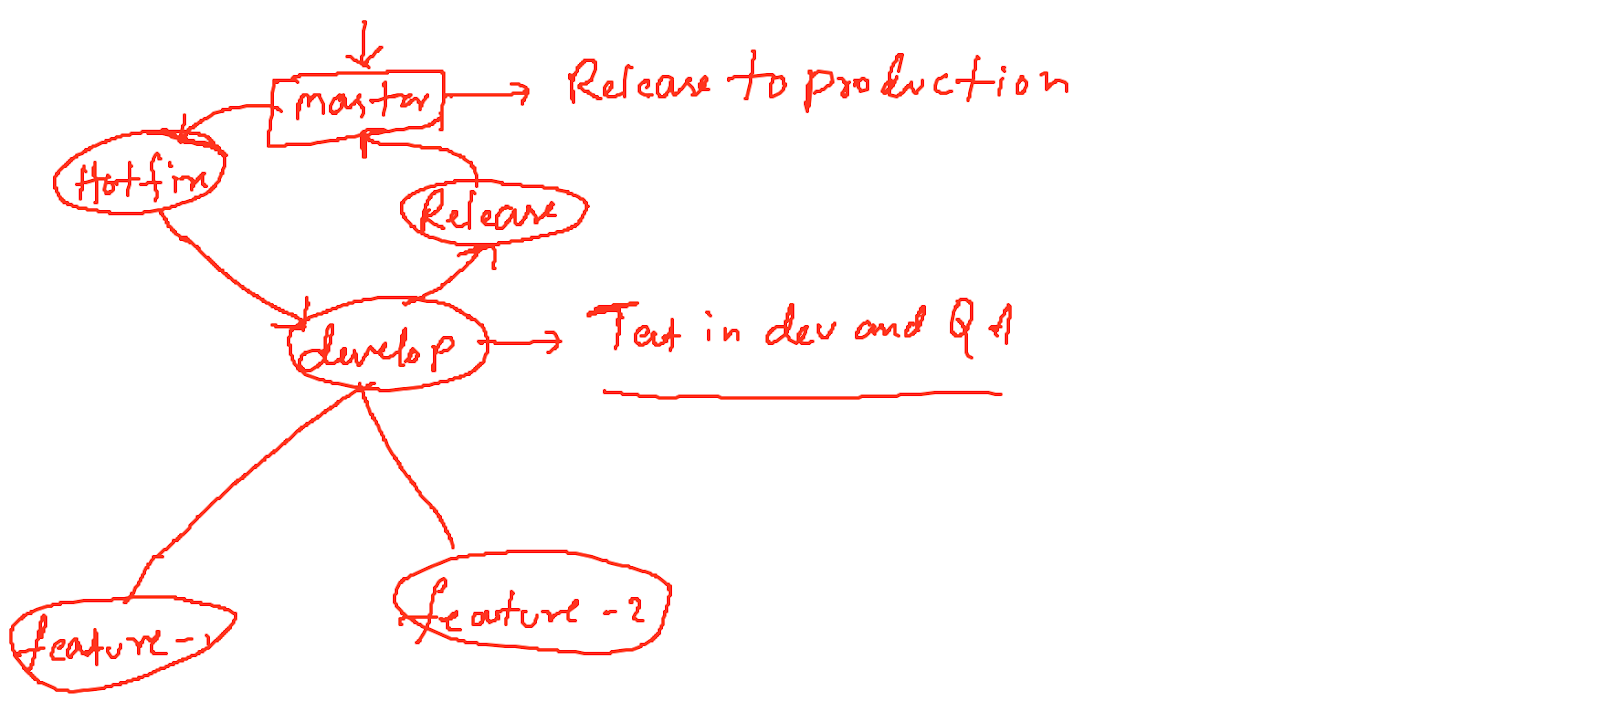 master
Release to production
Hotfix
Release
develop
Test in dev and QA
feature-1
feature-2